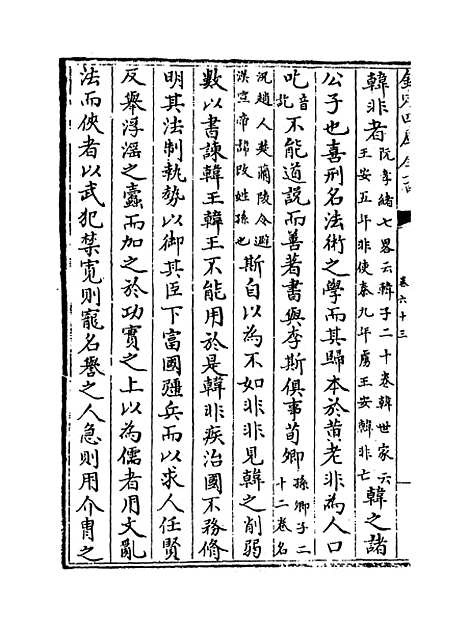 欽定四庫全書
卷六十三
韓非者阮孝緒七畧云韓子二十卷韓世家云王安五年非使秦九年虜王安韓非亡韓之諸
公子也喜刑名法術之學而其歸本於黄老非為人口
吃音訖不能道説而善著書與李斯俱事荀卿孫卿子二十二卷名
況趙人楚蘭陵令避漢宣帝諱改姓孫也斯自以為不如非非見韓之削弱
數以書諫韓王韓王不能用於是韓非疾治國不務脩
明其法制執勢以御其臣下富國彊兵而以求人任賢
反舉浮淫之蠹而加之於功實之上以為儒者用文亂
法而俠者以武犯禁寛則寵名譽之人急則用介胄之